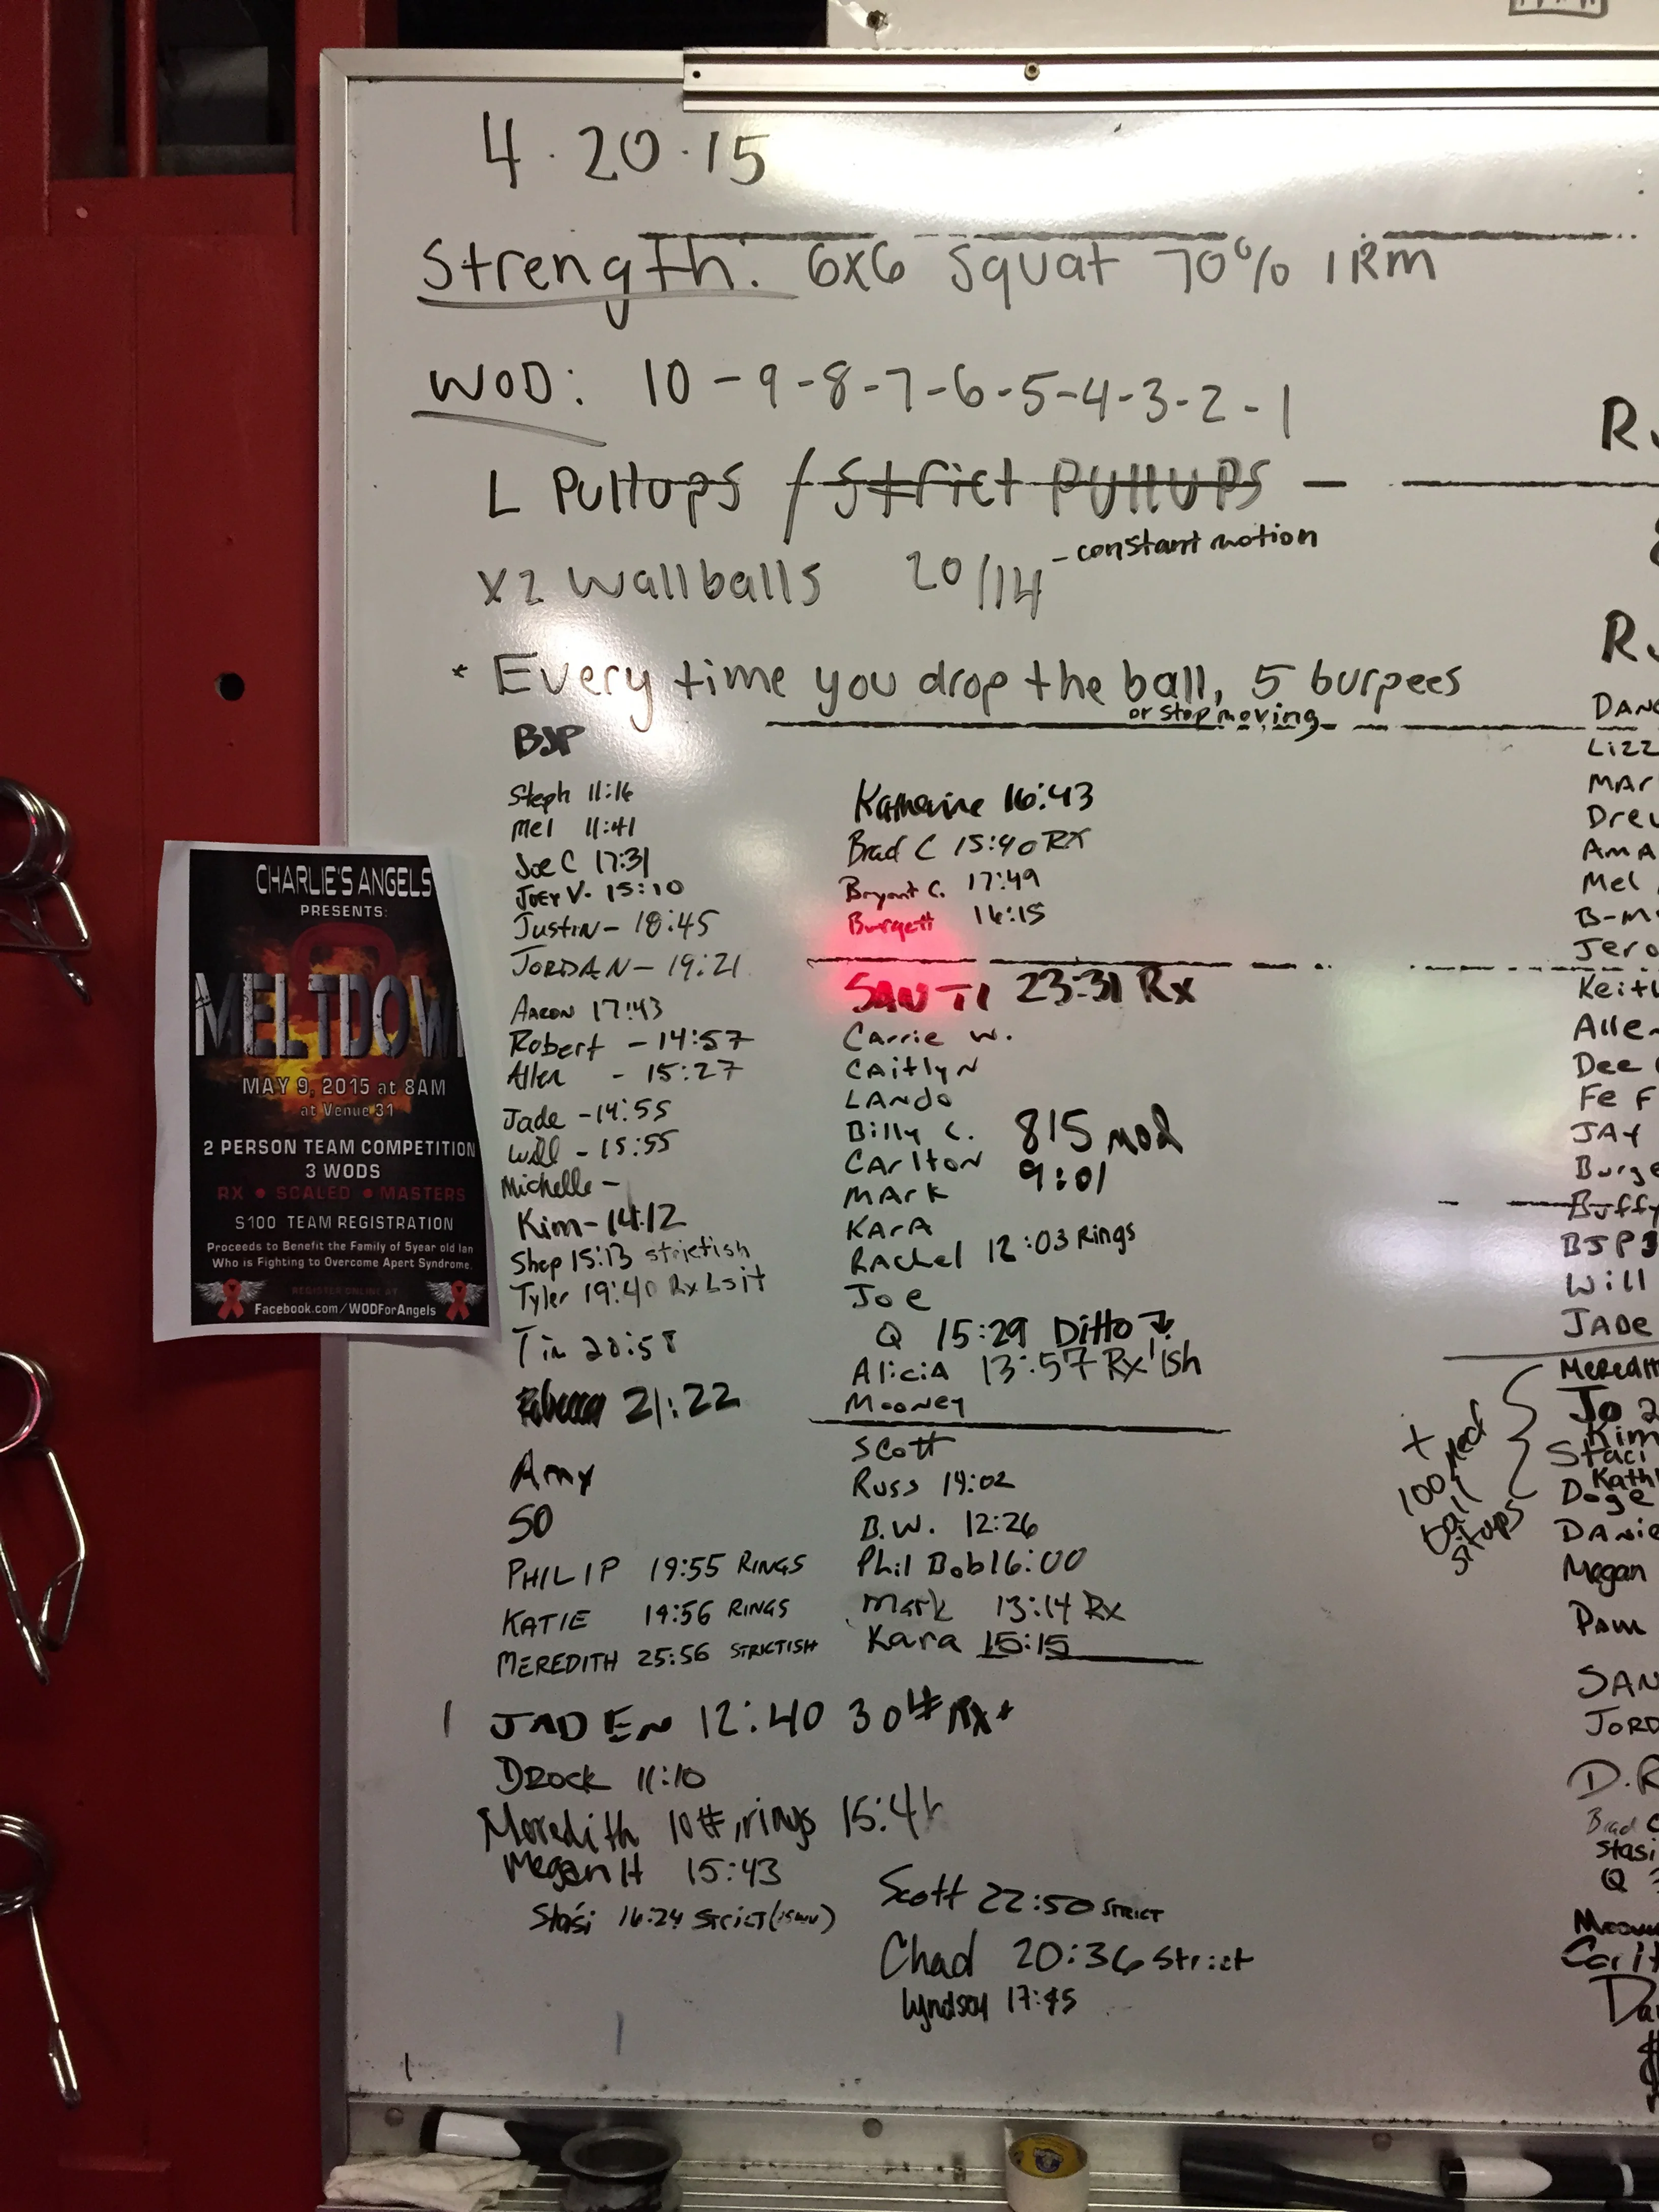 4.20.15
Strength: 6x6 Squat 70% 1RM
WOD: 10-9-8-7-6-5-4-3-2-1
L Pullups / Strict PUllUPS
x2 wallballs 20/14 - constant motion
* Every time you drop the ball, 5 burpees
or stop moving
BJP
Steph 11:16
Mel 11:41
Joe C 17:31
Joey V. 15:10
Justin - 18:45
JORDAN - 19:21
Aaron 17:43
Robert - 14:57
Allen - 15:27
Jade - 14:55
Will - 15:55
Michelle -
Kim - 14:12
Shep 15:13 strictish
Tyler 19:40 Rx Lsit
Tim 20:58
Rebecca 21:22
Amy
SO
PHILIP 19:55 RINGS
KATIE 19:56 RINGS
MEREDITH 25:56 STRICTISH
JADEN 12:40 30# Rx+
DRock 11:10
Meredith 10#, rings 15:4
Megan H 15:43
Stasi 16:24 Strict
Katherine 16:43
Brad C 15:40 RX
Bryant C. 17:49
Burgett 16:15
SANTI 23:31 Rx
Carrie W.
CAitlyN
LANdo
Billy C. 815 mod
CArltoN 9:01
MArk
KArA
RAchel 12:03 Rings
Joe
Q 15:29 Ditto ↓
AliciA 13:57 Rx'ish
Mooney
Scott
Russ 14:02
B.W. 12:26
Phil Bob 16:00
Mark 13:14 Rx
Kara 15:15
Scott 22:50 STRICT
Chad 20:36 Strict
Lyndsay 17:45
R
R
DANC
Lizz
MAr
Drew
AmA
Mel
B-M
Jero
Keith
Allen
Dee
Fe F
JAY
Burge
Buffy
BJP 3
Will
JADe
+ 100 Med ball situps
Meredith
Jo 2
Kim
Staci
Kath
Doge
DANie
Megan
Pam
SAN
JORD
D.R
Brad C
Stasi
Q
Carlt
CHARLIE'S ANGELS
PRESENTS:
MELTDOW
MAY 9, 2015 at 8AM
at Venue 31
2 PERSON TEAM COMPETITION
3 WODS
RX • SCALED • MASTERS
$100 TEAM REGISTRATION
Proceeds to Benefit the Family of 5year old Ian
Who is Fighting to Overcome Apert Syndrome.
REGISTER ONLINE AT
Facebook.com/WODForAngels